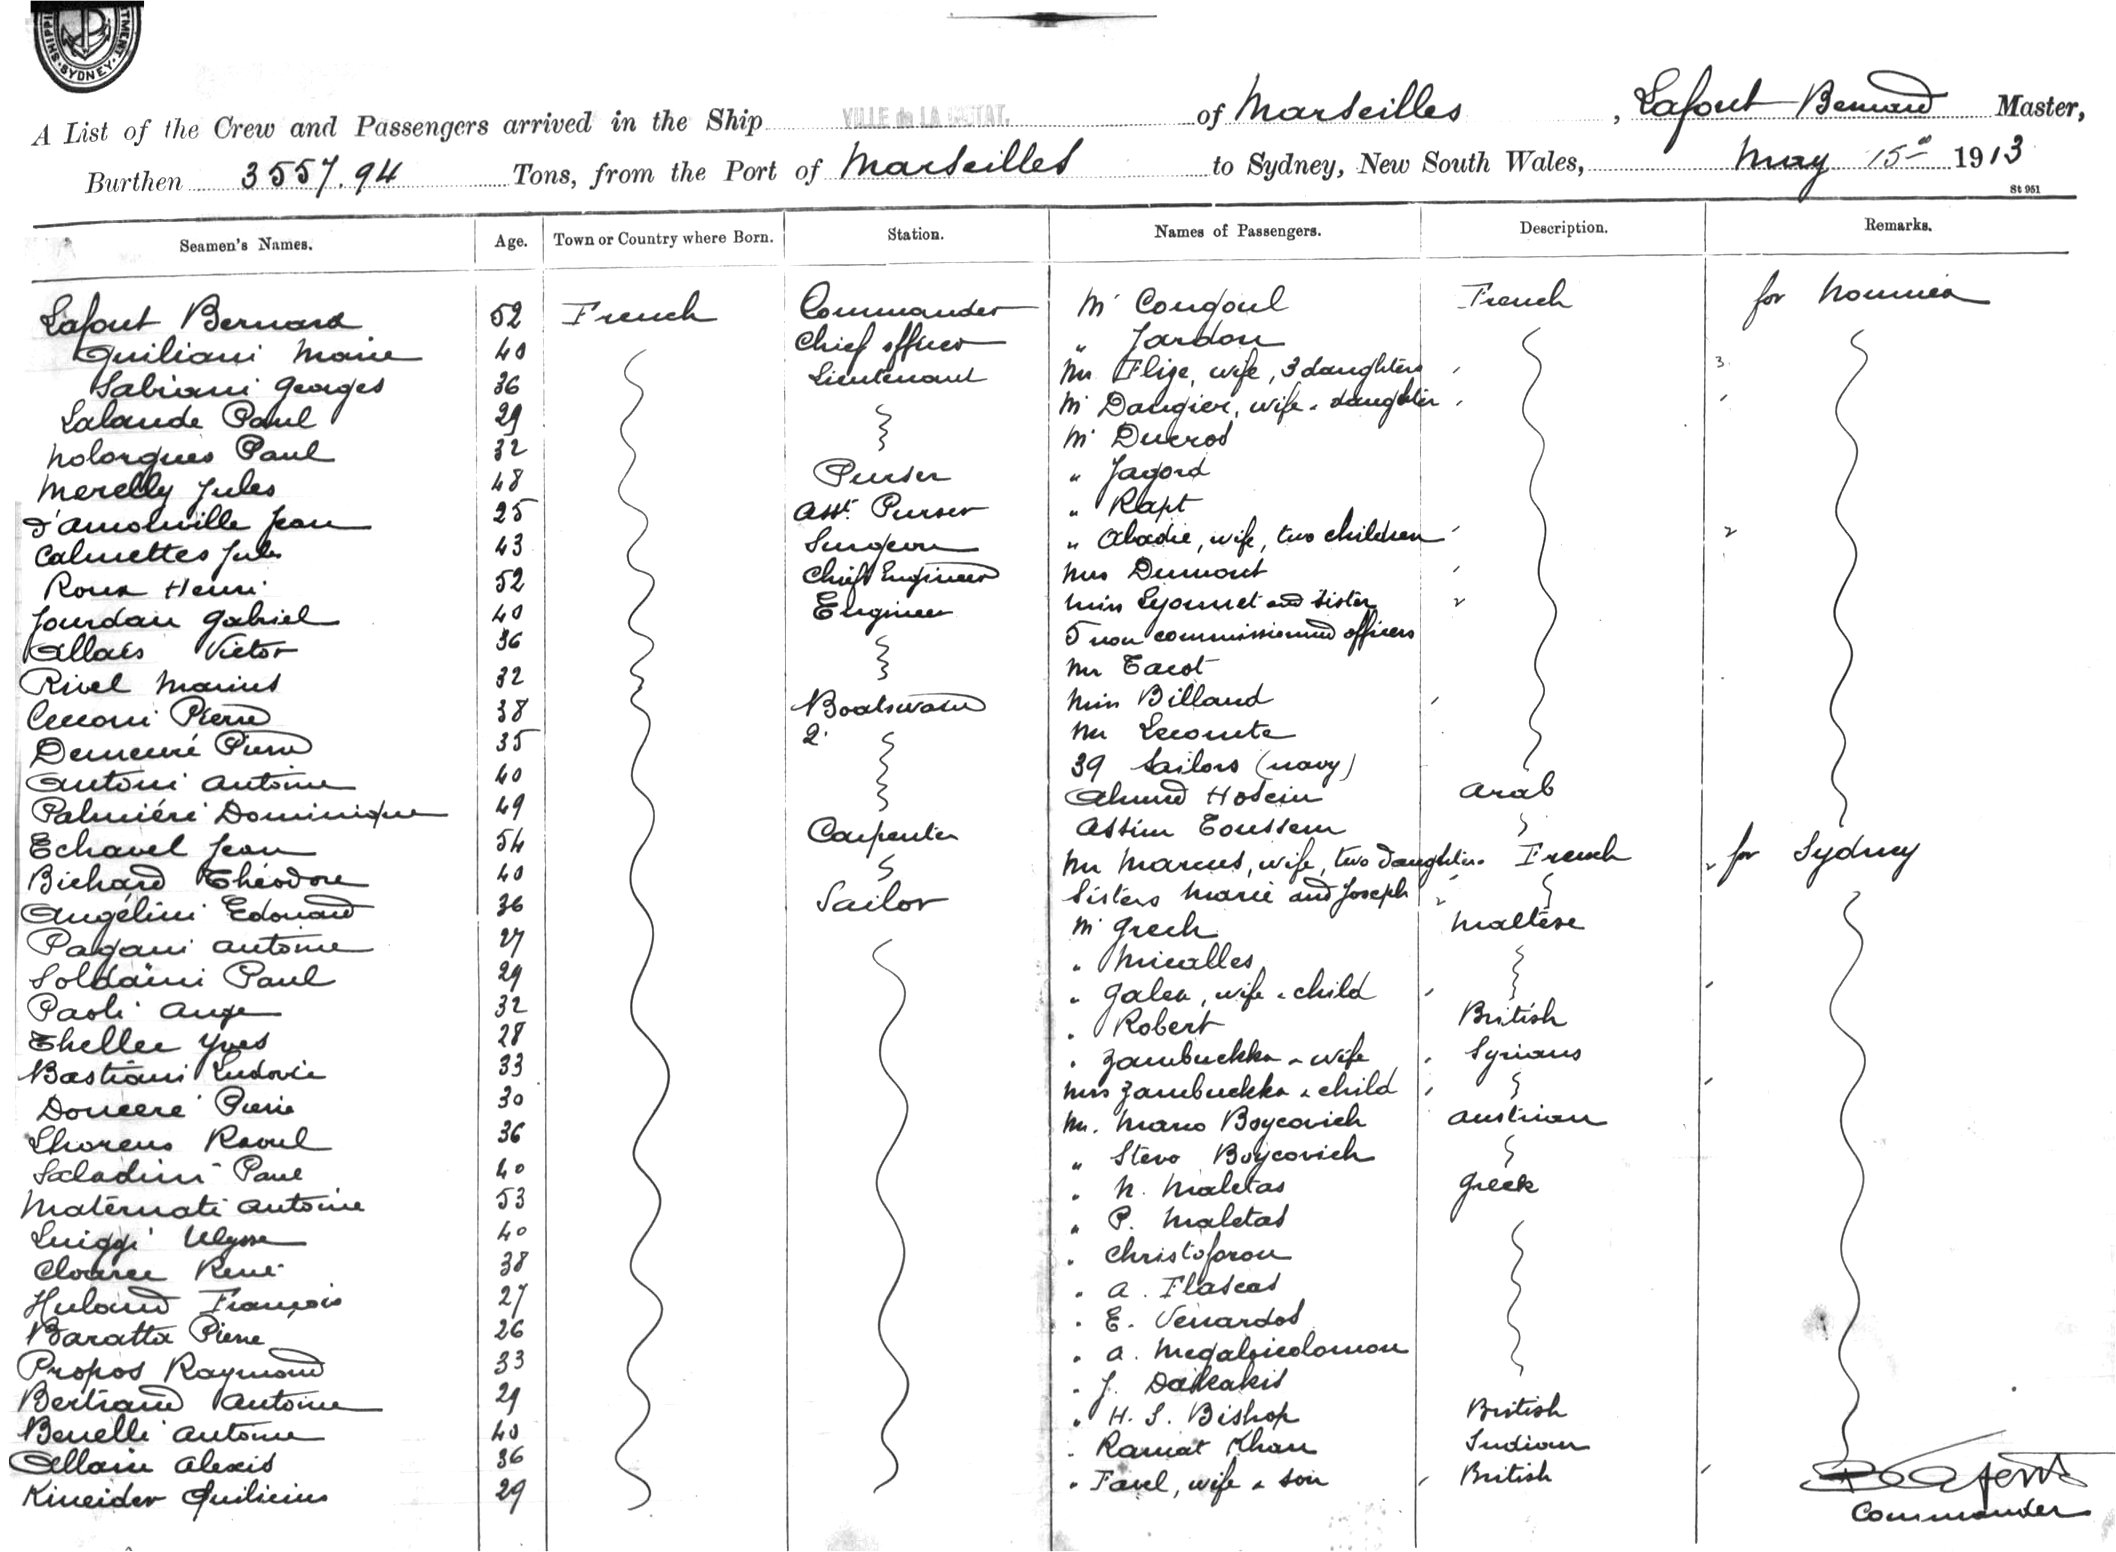 SHIPPI TMENT
SYDNEY
A List of the Crew and Passengers arrived in the Ship VILLE de LA CIOTAT. of Marseilles, Lafont Bernard Master,
Burthen 3557.94 Tons, from the Port of Marseilles to Sydney, New South Wales, May 15th 1913
St 951
Seamen's Names. Age. Town or Country where Born. Station. Names of Passengers. Description. Remarks.
Lafont Bernard 52 French Commander Mr Congoul French for Noumea
Quiliani Marie 40 Chief officer " Jardon
Sabiani Georges 36 Lieutenant Mr Flize, wife, 3 daughters 3
Lalande Paul 29 Mr Dangier, wife & daughter
Nolorgues Paul 32 Mr Ducros
Merelly Jules 48 Purser " Jagord
d'Amonville Jean 25 Asst. Purser " Rapt
Calmettes Jules 43 Surgeon " Abadie, wife, two children 2
Roux Henri 52 Chief Engineer Mrs Dumont
Jourdan Gabriel 40 Engineer Miss Lyonnet and sister 2
Allais Victor 36 5 non commissioned officers
Rivel Marius 32 Mr Tacot
Cecconi Pierre 38 Boatswain Miss Billaud
Demeuré Pierre 35 2 Mr Lecomte
Antoni Antoine 40 39 Sailors (navy)
Palmiéri Dominique 49 Ahmed Hosein Arab
Echavel Jean 54 Carpenter Assim Toussem
Bichard Théodore 40 Mr Marcus, wife, two daughters French 2 for Sydney
Angélini Edouard 36 Sailor Sisters Marie and Joseph 2
Pagani Antoine 27 Mr Grech Maltese
Soldaini Paul 29 " Micalles
Paoli Ange 32 " Galea, wife & child
Thellec Yves 28 " Robert British
Bastiani Ludovic 33 " Zambuckka & wife Syrians
Doucere Pierre 30 Mrs Zambuckka & child
Lhorens Raoul 36 Mr. Marco Boycovich Austrian
Saladini Paul 40 " Stevo Boycovich
Maternati Antoine 53 " N. Maletas Greek
Luiggi Ulysse 40 " P. Maletas
Cloarec René 38 " Christoforou
Hulaud François 27 " A. Flascas
Baratta Pierre 26 " E. Venardos
Propos Raymond 33 " A.
Bertrand Antoine 29 " J. Daikakis
Benelli Antoine 40 " H. S. Bishop British
Allain Alexis 36 " Ramat Khan Indian
Kineider Quilicius 29 " Favel, wife & son British
Commander